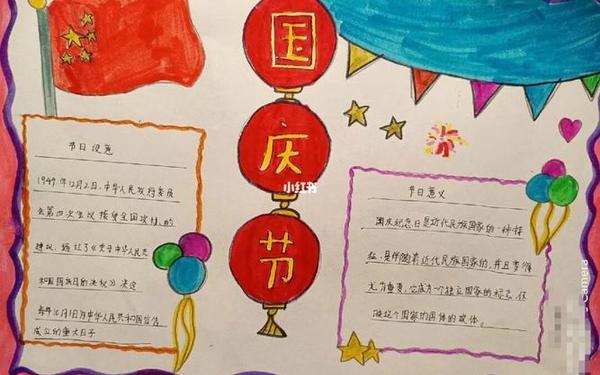 国
庆
节
小红书
节日设意
1949年12月2日,中华人民政府委员
会第四次会议接受全国政协的
建议,通过了《关于中华人民共
和国国庆日的决议》决定
每年10月1日为中华人民共和国宣告
成立的重大日子
节日意义
国庆纪念日是近代民族国家的一种特
征,是伴随着近代民族国家的,并且变得
尤为重要,它成为一个独立国家的标志,反
映这个国家的国体的政体。
Camera